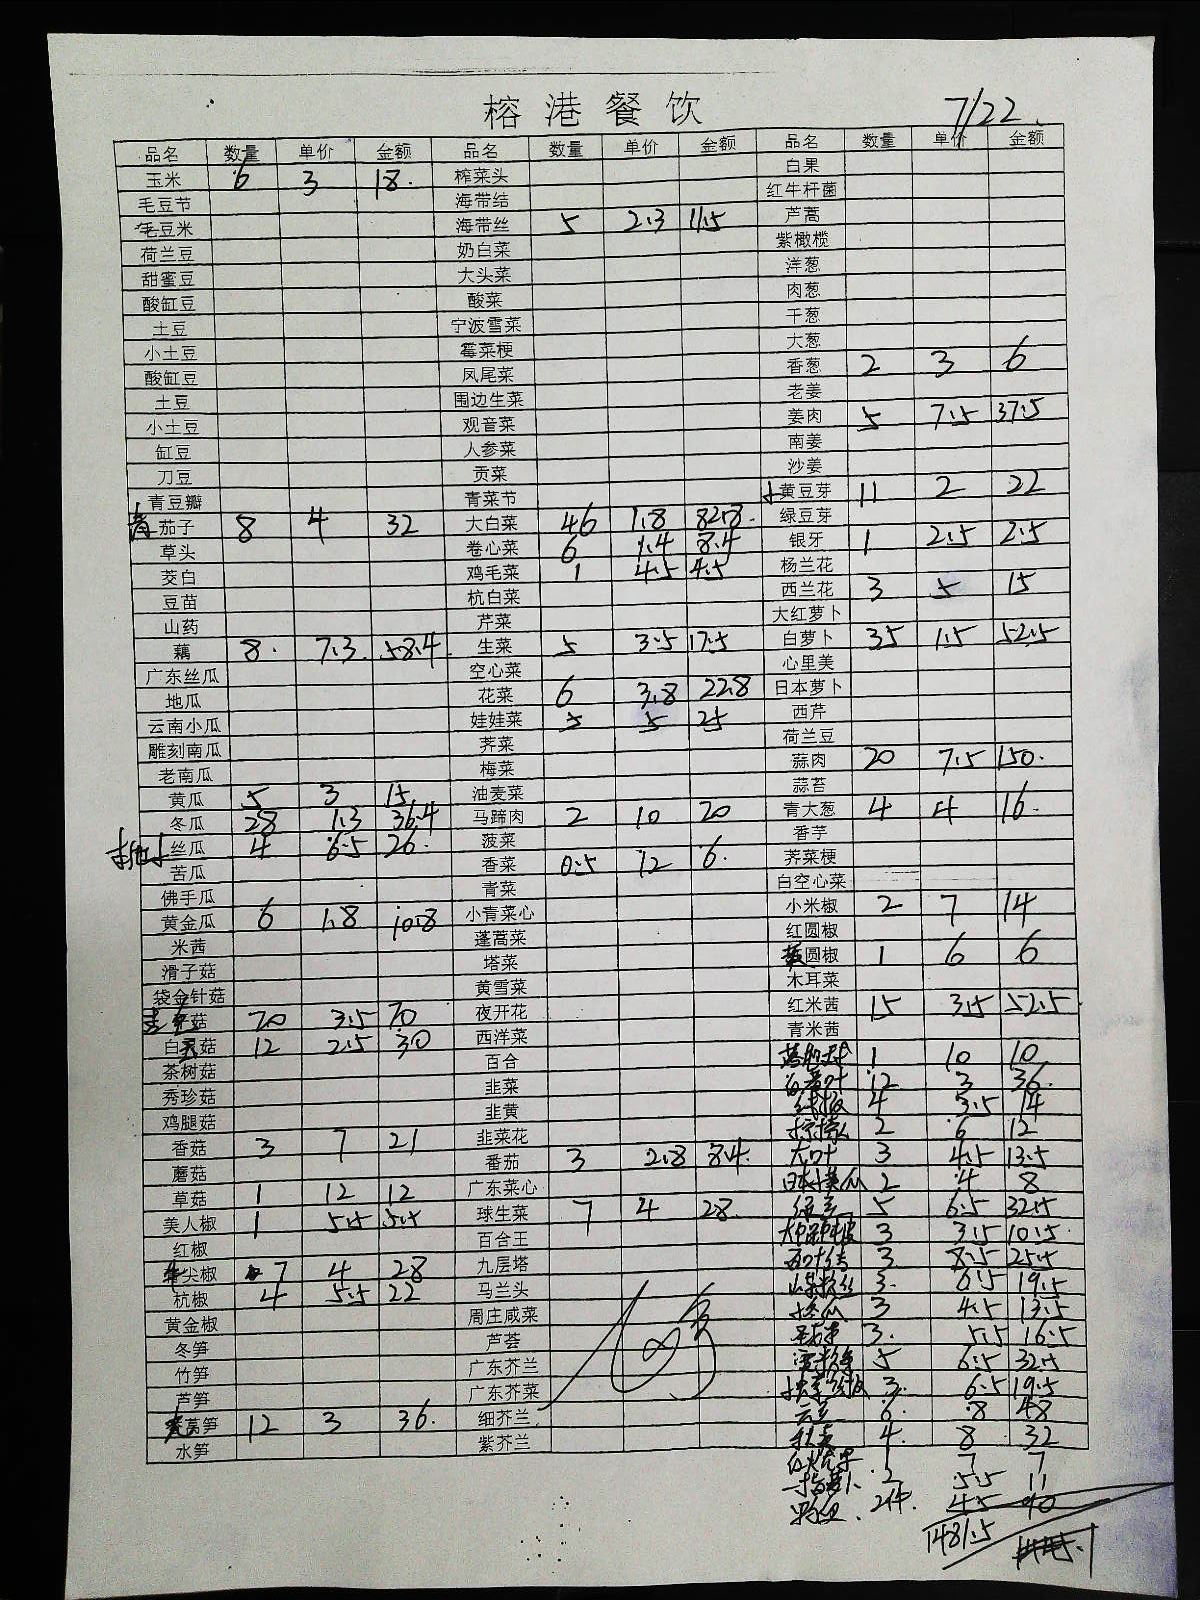 榕港餐饮
7/22
品名 数量 单价 金额 品名 数量 单价 金额 品名 数量 单价 金额
玉米 6 3 18. 榨菜头 白果
毛豆节 海带结 红牛杆菌
毛豆米 海带丝 5 2.3 11.5 芦蒿
荷兰豆 奶白菜 紫橄榄
甜蜜豆 大头菜 洋葱
酸缸豆 酸菜 肉葱
土豆 宁波雪菜 干葱
小土豆 霉菜梗 大葱
酸缸豆 凤尾菜 香葱 2 3 6
土豆 围边生菜 老姜
小土豆 观音菜 姜肉 5 7.5 37.5
缸豆 人参菜 南姜
刀豆 贡菜 沙姜
青豆瓣 青菜节 黄豆芽 11 2 22
茄子 8 4 32 大白菜 46 1.8 82.8 绿豆芽
草头 卷心菜 6 1.4 8.4 银牙 1 2.5 2.5
茭白 鸡毛菜 1 4.5 4.5 杨兰花
豆苗 杭白菜 西兰花 3 5 15
山药 芹菜 大红萝卜
藕 8. 7.3. 58.4 生菜 5 3.5 17.5 白萝卜 35 1.5 52.5
广东丝瓜 空心菜 心里美
地瓜 花菜 6 3.8 22.8 日本萝卜
云南小瓜 娃娃菜 5 5 25 西芹
雕刻南瓜 荠菜 荷兰豆
老南瓜 梅菜 蒜肉 20 7.5 150.
黄瓜 5 3 15 油麦菜 蒜苔
冬瓜 28 1.3 36.4 马蹄肉 2 10 20 青大葱 4 4 16.
丝瓜 4 6.5 26. 菠菜 香芋
苦瓜 香菜 0.5 12 6. 荠菜梗
佛手瓜 青菜 白空心菜
黄金瓜 6 1.8 10.8 小青菜心 小米椒 2 7 14
米茜 蓬蒿菜 红圆椒
滑子菇 塔菜 圆椒 1 6 6
袋金针菇 黄雪菜 木耳菜
菇 20 3.5 70 夜开花 红米茜 15 3.5 52.5.
白灵菇 12 2.5 30 西洋菜 青米茜
茶树菇 百合 1 10 10
秀珍菇 韭菜 12 3 36.
鸡腿菇 韭黄 4 3.5 14
香菇 3 7 21 韭菜花 2 6 12
蘑菇 番茄 3 2.8 8.4. 大叶 3 4.5 13.5
草菇 1 12 12 广东菜心 日本 瓜 2 4 8
美人椒 1 5.5 5.5 球生菜 7 4 28. 5 6.5 32.5
红椒 百合王 3 3.5 10.5
尖椒 7 4 28 九层塔 3 8.5 25.5
杭椒 4 5.5 22 马兰头 3. 6.5 19.5
黄金椒 周庄咸菜 3 4.5 13.5
冬笋 芦荟 3. 5.5 16.5
竹笋 广东芥兰 5 6.5 32.5
芦笋 广东芥菜 3. 6.5 19.5
莴笋 12 3 36. 细芥兰 云豆 6. 8 48
水笋 紫芥兰 4. 8 32
1 7 7
2 5.5 11
2件. 45 90
1481.5